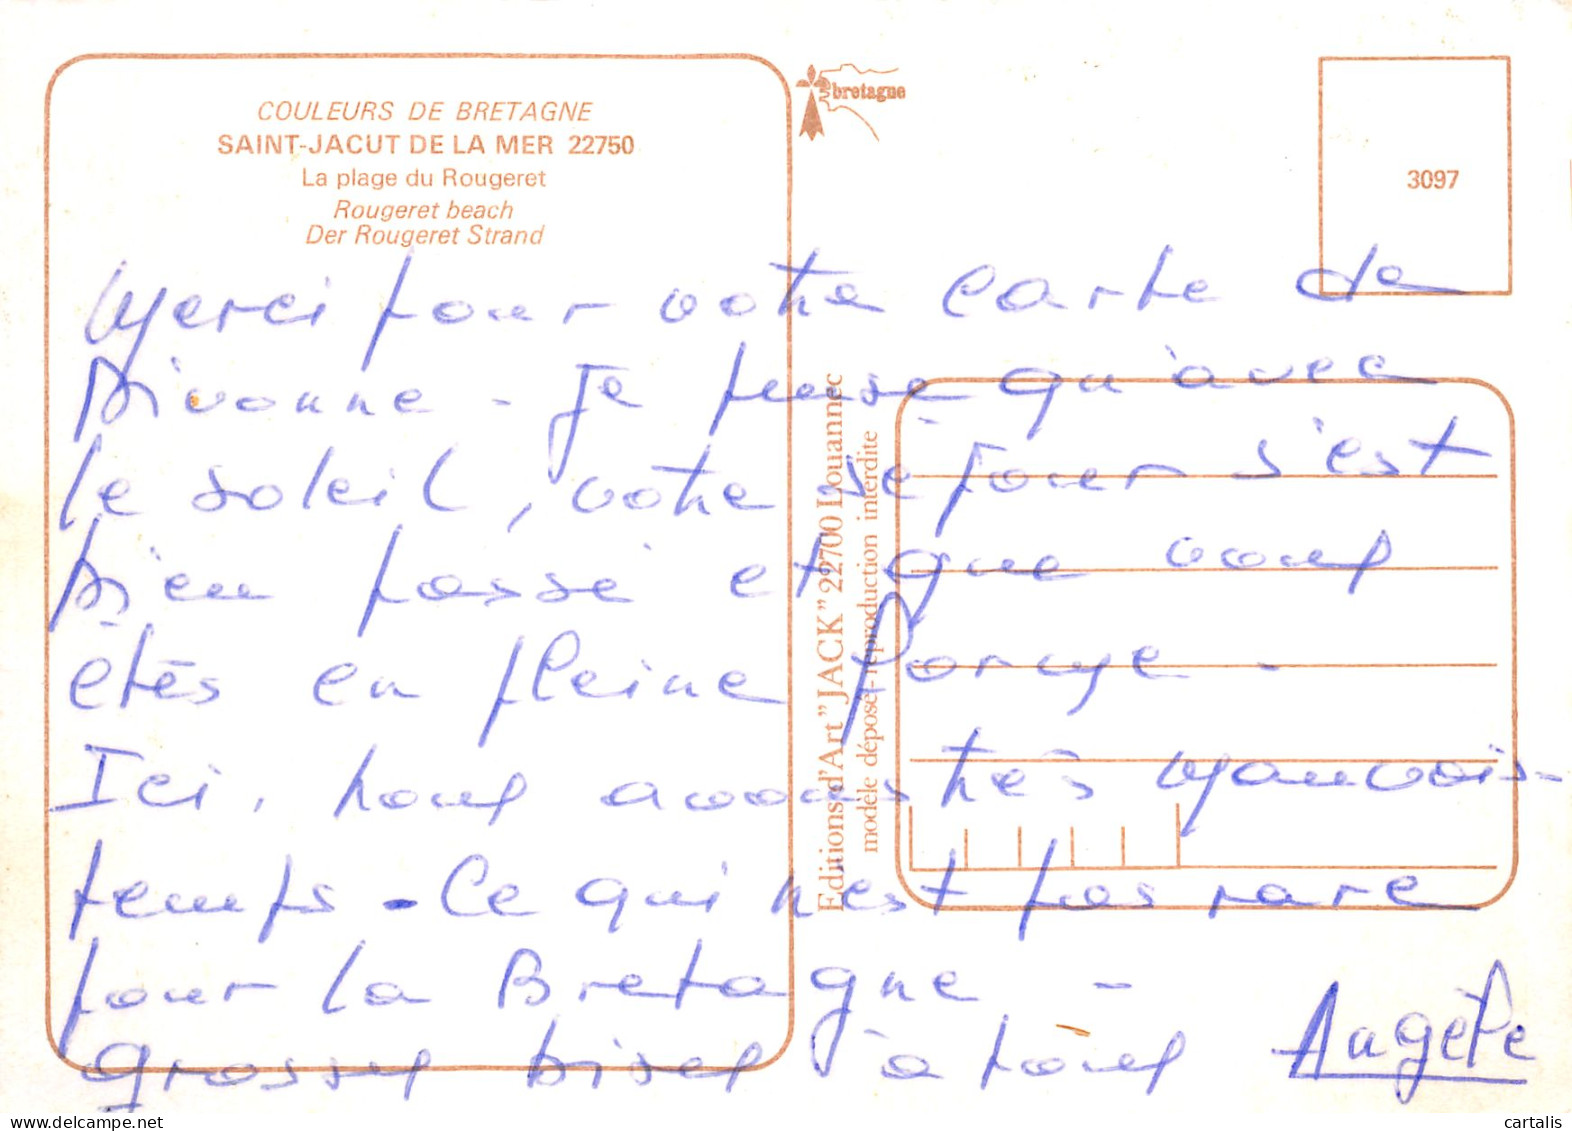 COULEURS DE BRETAGNE
SAINT-JACUT DE LA MER 22750
La plage du Rougeret
Rougeret beach
Der Rougeret Strand
bretagne
3097
Editions d'Art "JACK" 22700 Louannec
modèle déposé - reproduction interdite
Merci pour votre carte de
Divonne - Je pense qu'avec
le soleil, votre séjour s'est
bien passé et que vous
êtes en pleine forme -
Ici, nous avons très mauvais
temps - Ce qui n'est pas rare
pour la Bretagne -
grosses bises à tous Angèle
delcampe.net
cartalis